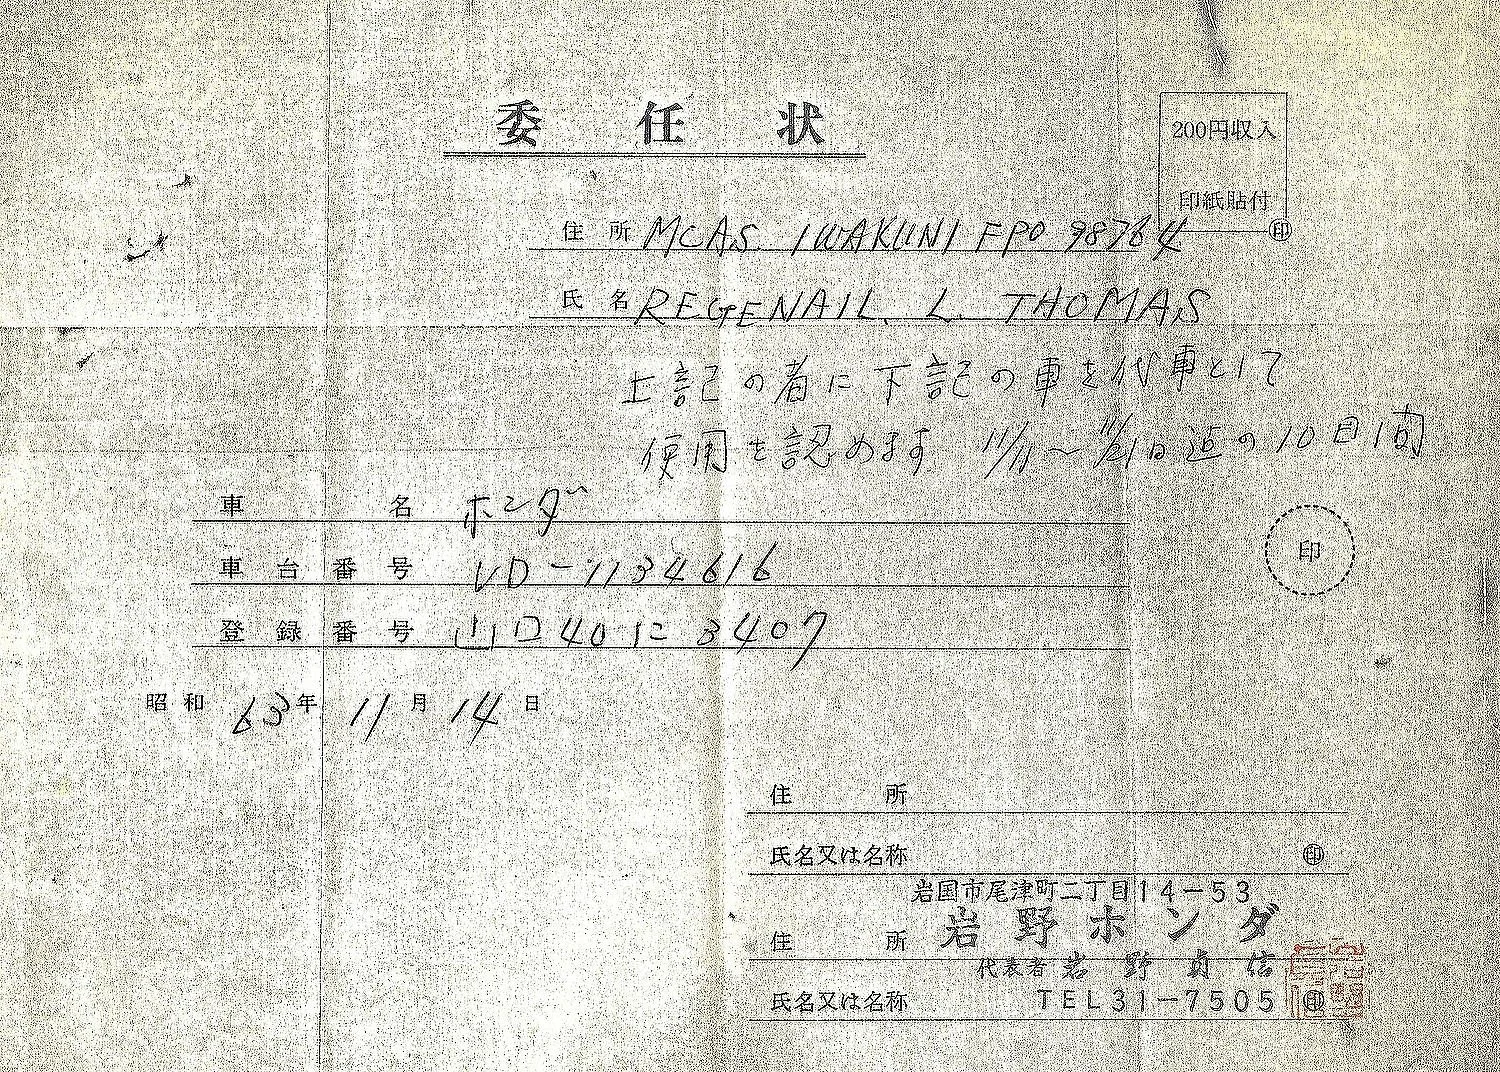 委任状
200円収入
印紙貼付
印
住所 MCAS. IWAKUNI FPO 98764
氏名 REGENAIL. L. THOMAS
上記の者に下記の車を代車として
使用を認めます 11/11〜11/21日迄の10日間
車名 ホンダ
印
車台番号 VD-1134616
登録番号 山口40に3407
昭和63年11月14日
住所
氏名又は名称 印
岩国市尾津町二丁目14-53
住所 岩野ホンダ
代表者 岩野貞信
氏名又は名称 TEL31-7505 印